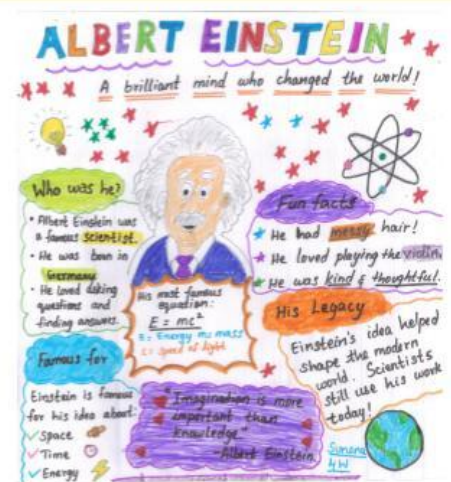 ALBERT EINSTEIN
A brilliant mind who changed the world!
Who was he?
• Albert Einstein was
a famous scientist.
• He was born in
Germany
• He loved asking
questions and
finding answers.
Famous for
Einstein is famous
for his idea about:
Space
Time
Energy
His most famous
equation:
E = mc²
E = Energy m = mass
c = speed of light
"Imagination is more
important than
knowledge"
-Albert Einstein.
Fun facts
He had messy hair!
He loved playing the violin.
He was kind & thoughtful.
His Legacy
Einstein's idea helped
shape the modern
world. Scientists
still use his work
today!
Simone
4W